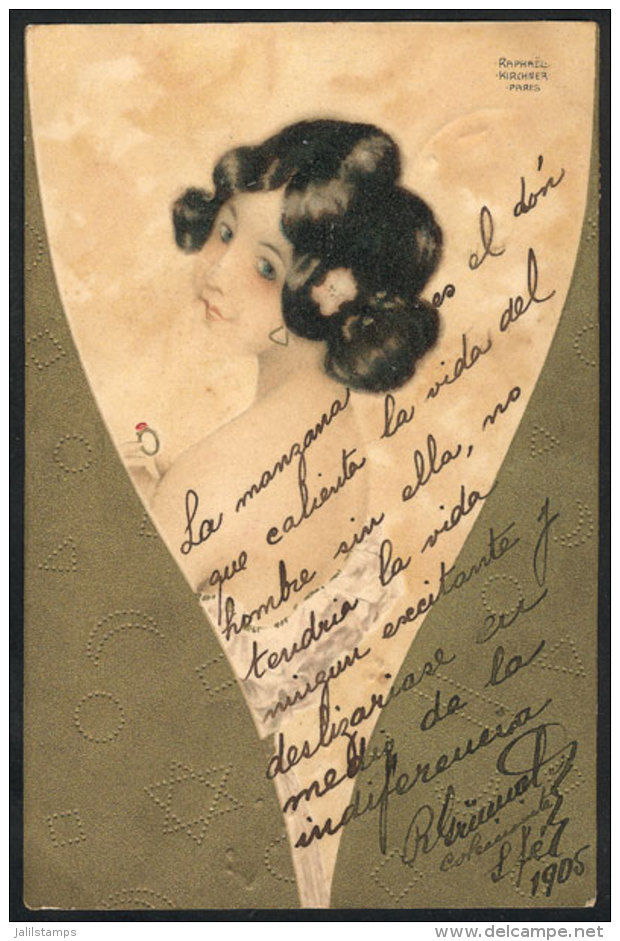 RAPHAËL
KIRCHNER
PARIS
La manzana es el dón
que calienta la vida del
hombre sin ella, no
tendria la vida
ningun excitante y
deslizariase en
medio de la
indiferencia
1905
© jalilstamps
www.delcampe.net